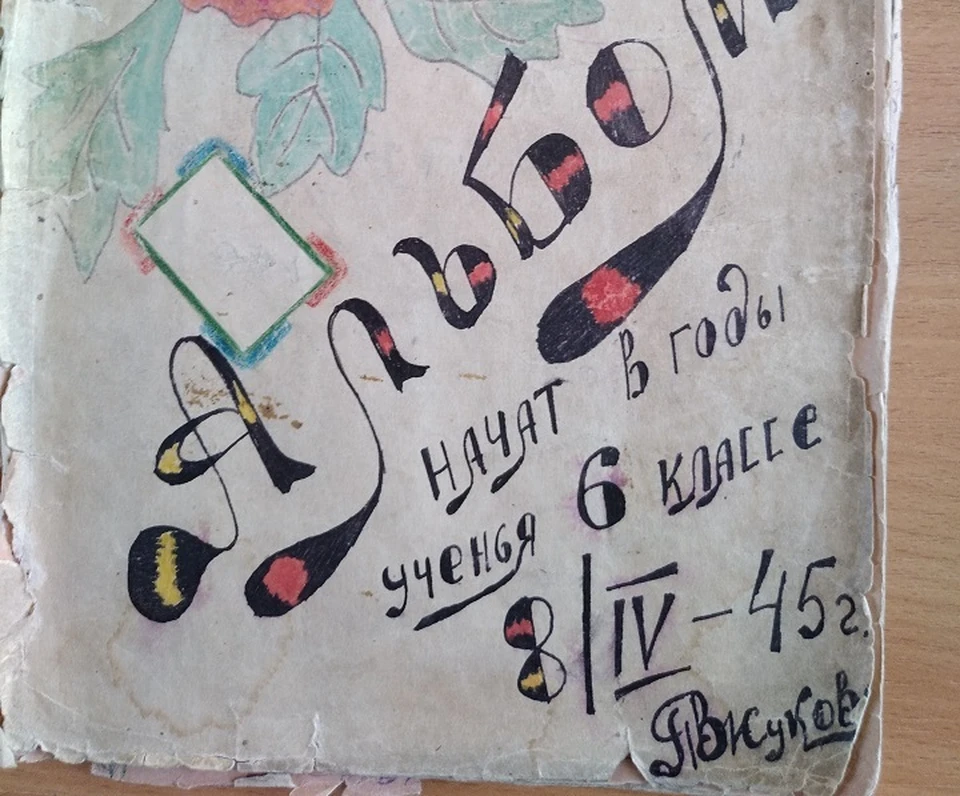 Альбом
начат в годы
ученья 6 классе
8/IV – 45 г.
Жуков